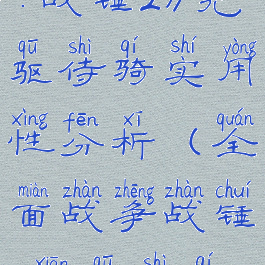 战锤2》先
qū shì qí shí yòng
驱侍骑实用
xìng fēn xī quán
性分析（全
miàn zhàn zhēng zhàn chuí
面战争战锤
xiān qū shì qí